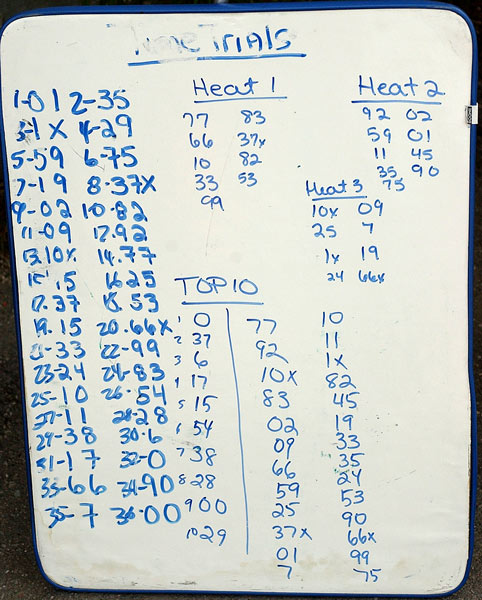 Time Trials
1-01 2-35
3-1X 4-29
5-59 6-75
7-19 8-37X
9-02 10-82
11-09 12-92
13-10x 14-77
15-5 16-25
17-37 18-53
19-15 20-66X
21-33 22-99
23-24 24-83
25-10 26-54
27-11 28-28
29-38 30-6
31-17 32-0
33-66 34-90
35-7 36-00
Heat 1
77 83
66 37x
10 82
33 53
99
Heat 2
92 02
59 01
11 45
35 90
75
Heat 3
10x 09
25 7
1x 19
24 66x
TOP 10
1 0
2 37
3 6
4 17
5 15
6 54
7 38
8 28
9 00
10 29
77 10
92 11
10X 1x
83 82
02 45
09 19
66 33
59 35
25 24
37x 53
01 90
7 66x
99
75